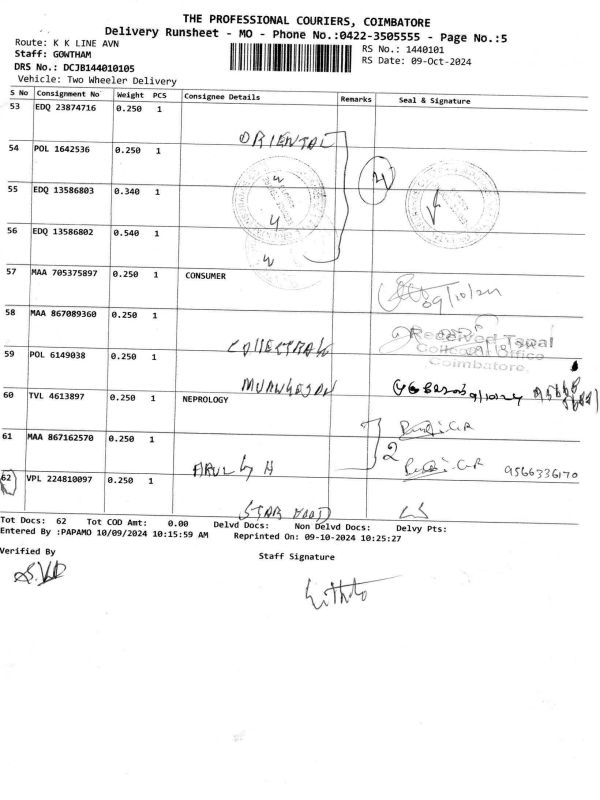 THE PROFESSIONAL COURIERS, COIMBATORE
Delivery Runsheet - MO - Phone No.:0422-3505555 - Page No.:5
Route: K K LINE AVN
RS No.: 1440101
Staff: GOWTHAM
RS Date: 09-Oct-2024
DRS No.: DCJB144010105
Vehicle: Two Wheeler Delivery
S No Consignment No Weight PCS Consignee Details Remarks Seal & Signature
53 EDQ 23874716 0.250 1
ORIENTAL
54 POL 1642536 0.250 1
55 EDQ 13586803 0.340 1
56 EDQ 13586802 0.540 1
4
57 MAA 705375897 0.250 1 CONSUMER
09/10/24
58 MAA 867089360 0.250 1
Received Tapal
Collector Office
Coimbatore.
59 POL 6149038 0.250 1
MURUGESAN
60 TVL 4613897 0.250 1 NEPROLOGY
61 MAA 867162570 0.250 1
2
ARUL H
9566336170
62 VPL 224810097 0.250 1
STAR
Tot Docs: 62 Tot COD Amt: 0.00 Delvd Docs: Non Delvd Docs: Delvy Pts:
Entered By :PAPAMO 10/09/2024 10:15:59 AM Reprinted On: 09-10-2024 10:25:27
Verified By
Staff Signature